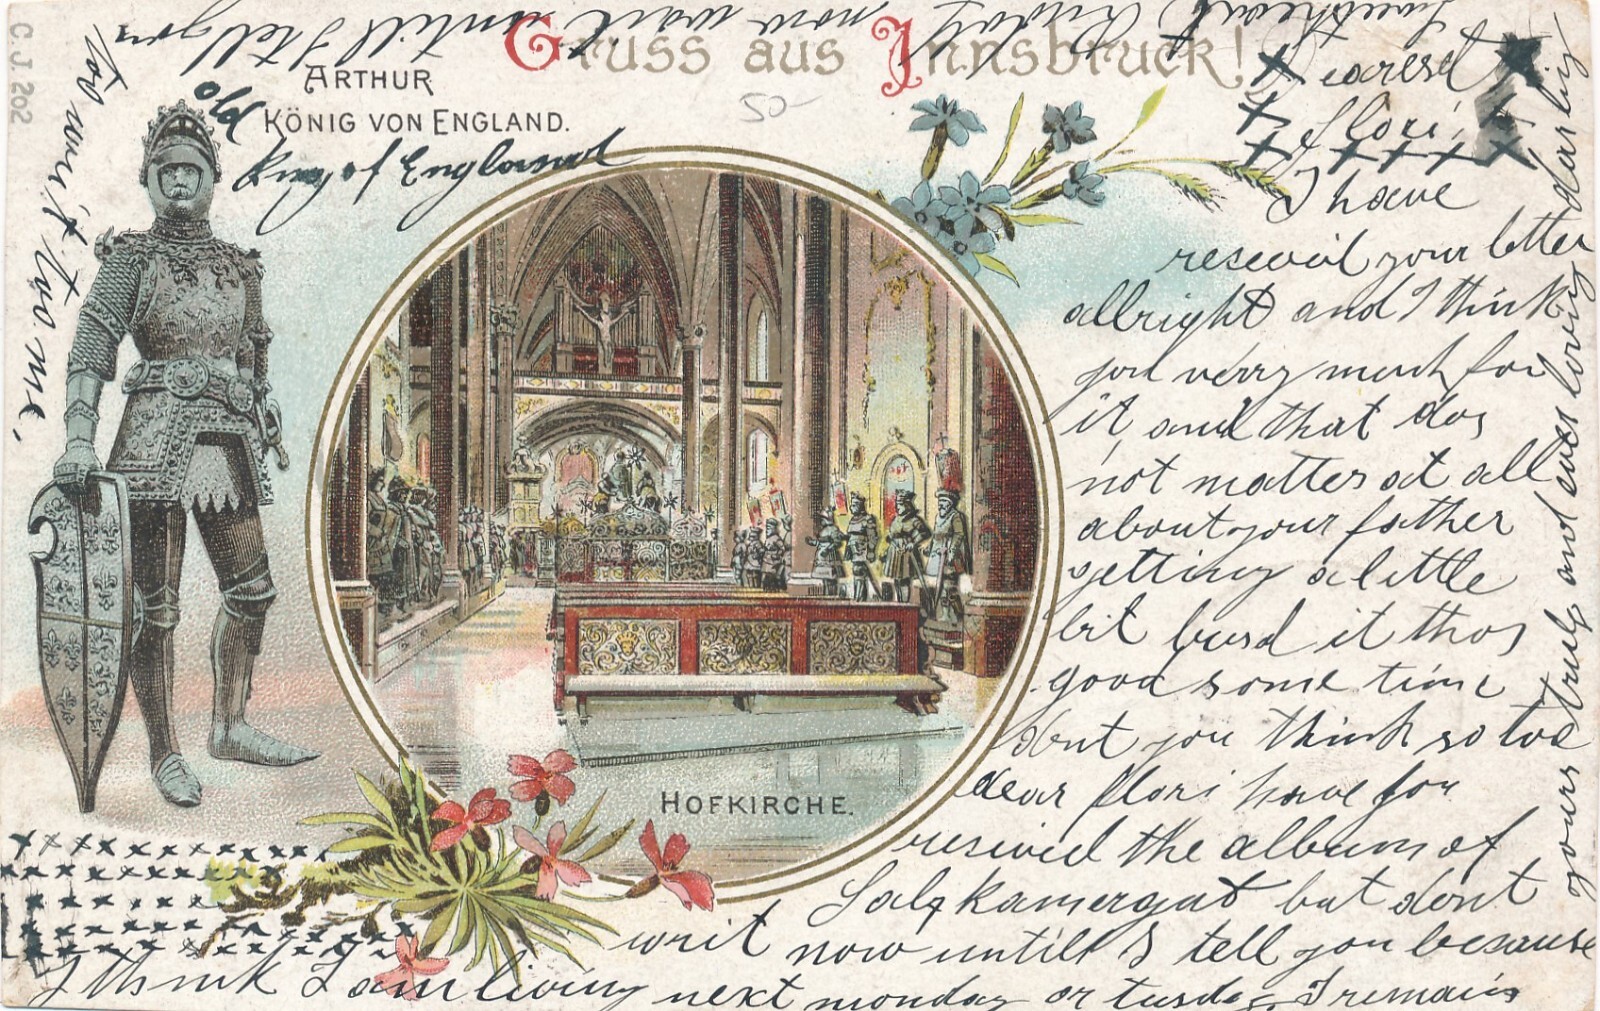 Gruss aus Innsbruck!
C.J. 202
ARTHUR
KÖNIG VON ENGLAND.
old
King of England
50-
HOFKIRCHE.
Dearest
Flori,
I have
reseveid your letter
allright and I think
you verry much for
it, and that dos
not matter at all
about your father
getting a little
bit busd it thos
good some time
dont you think so too
dear flori have you
resived the album of
Salzkamergut but dont
writ now untill I tell you because
I think I am living next monday or tusday I remain
yours truly and ever loving darling
Sweetheart
now wait untill I tell you
too writ two me.